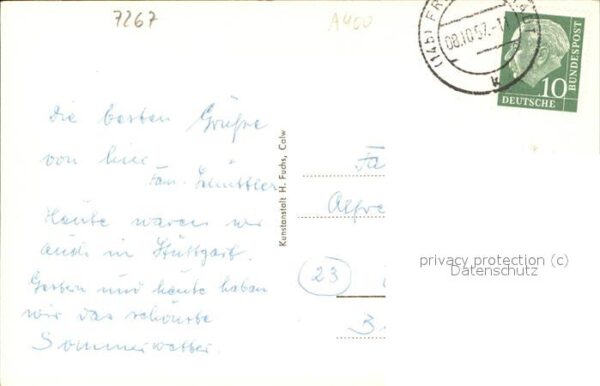 7267
A400
(14b) FR
08.10.57.-1
k
10
DEUTSCHE
BUNDESPOST
Die besten Grüße
von hier
Fam. Schüttler
Heute waren wir
auch in Stuttgart.
Gestern und heute haben
wir das schönste
Sommerwetter.
Kunstanstalt H. Fuchs, Calw
Fa
Alfre
(23)
B
privacy protection (c)
Datenschutz